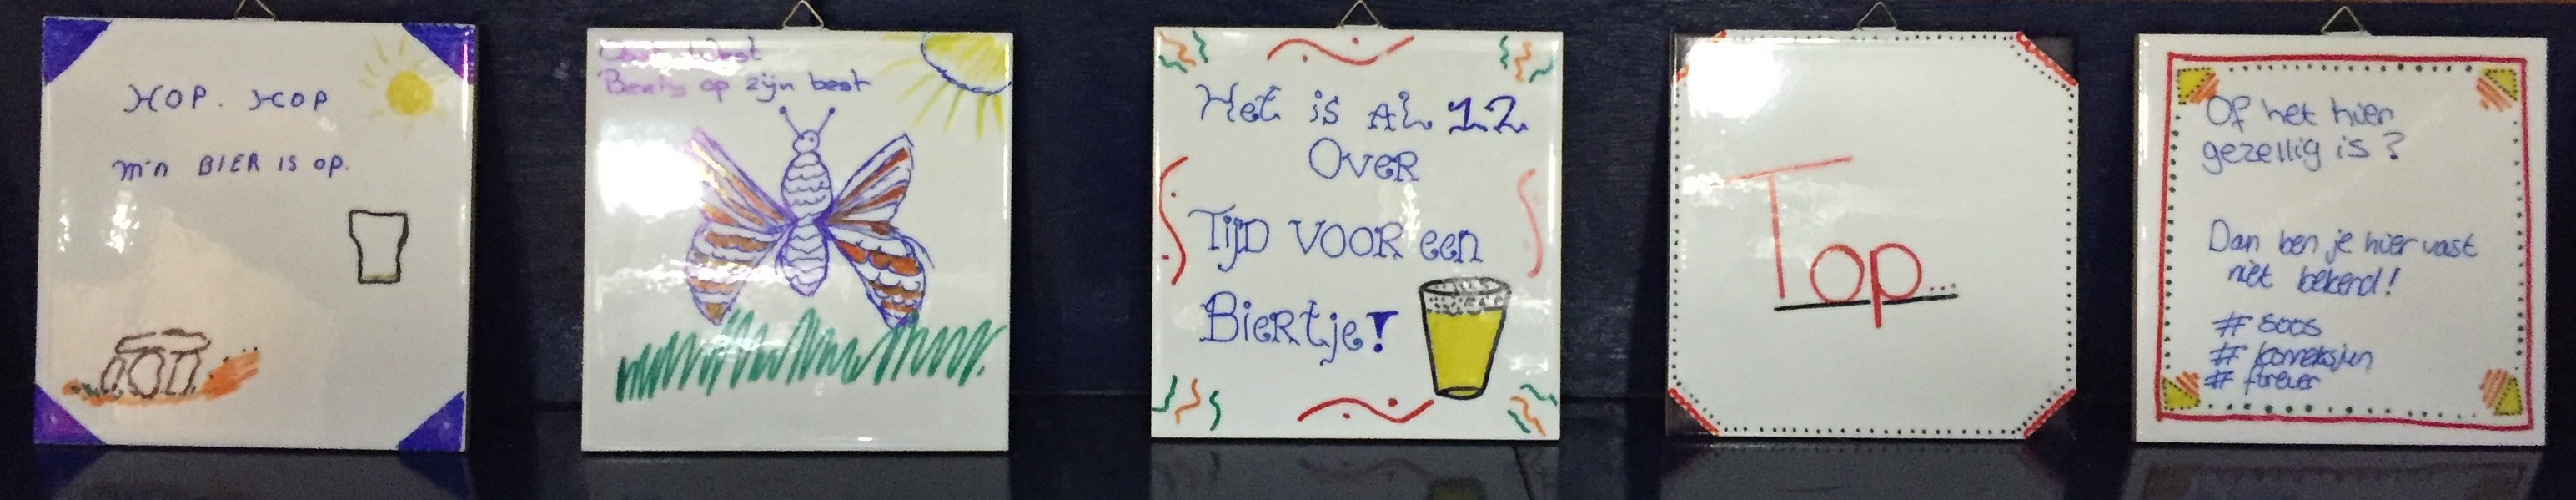 HOP. HOP
m'n BIER IS OP.
op zijn best
Het is AL 12
OVER
TijD VOOR een
BieRtje!
Top...
Of het hier
gezellig is?
Dan ben je hier vast
niet bekend!
# soos
# konneksjun
# forever